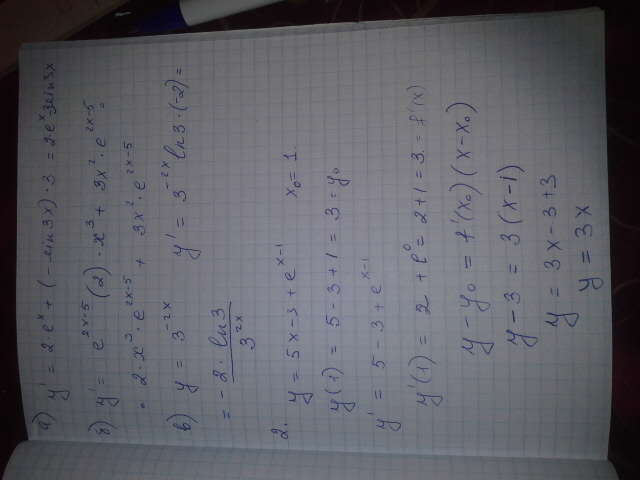 а) y' = 2·eˣ + (-sin 3x)·3 = 2·eˣ 3sin 3x
б) y' = e²ˣ⁻⁵(2)·x³ + 3x²·e²ˣ⁻⁵ =
= 2·x³·e²ˣ⁻⁵ + 3x²·e²ˣ⁻⁵
в) y = 3⁻²ˣ y' = 3⁻²ˣ ln3·(-2) =
= - 2·ln3 / 3²ˣ
2. y = 5x-3+eˣ⁻¹ x₀=1.
y(1) = 5-3+1 = 3 = y₀
y' = 5-3+eˣ⁻¹
y'(1) = 2 + e⁰ = 2+1 = 3. = f'(x)
y-y₀ = f'(x₀)(x-x₀)
y-3 = 3(x-1)
y = 3x-3+3
y = 3x